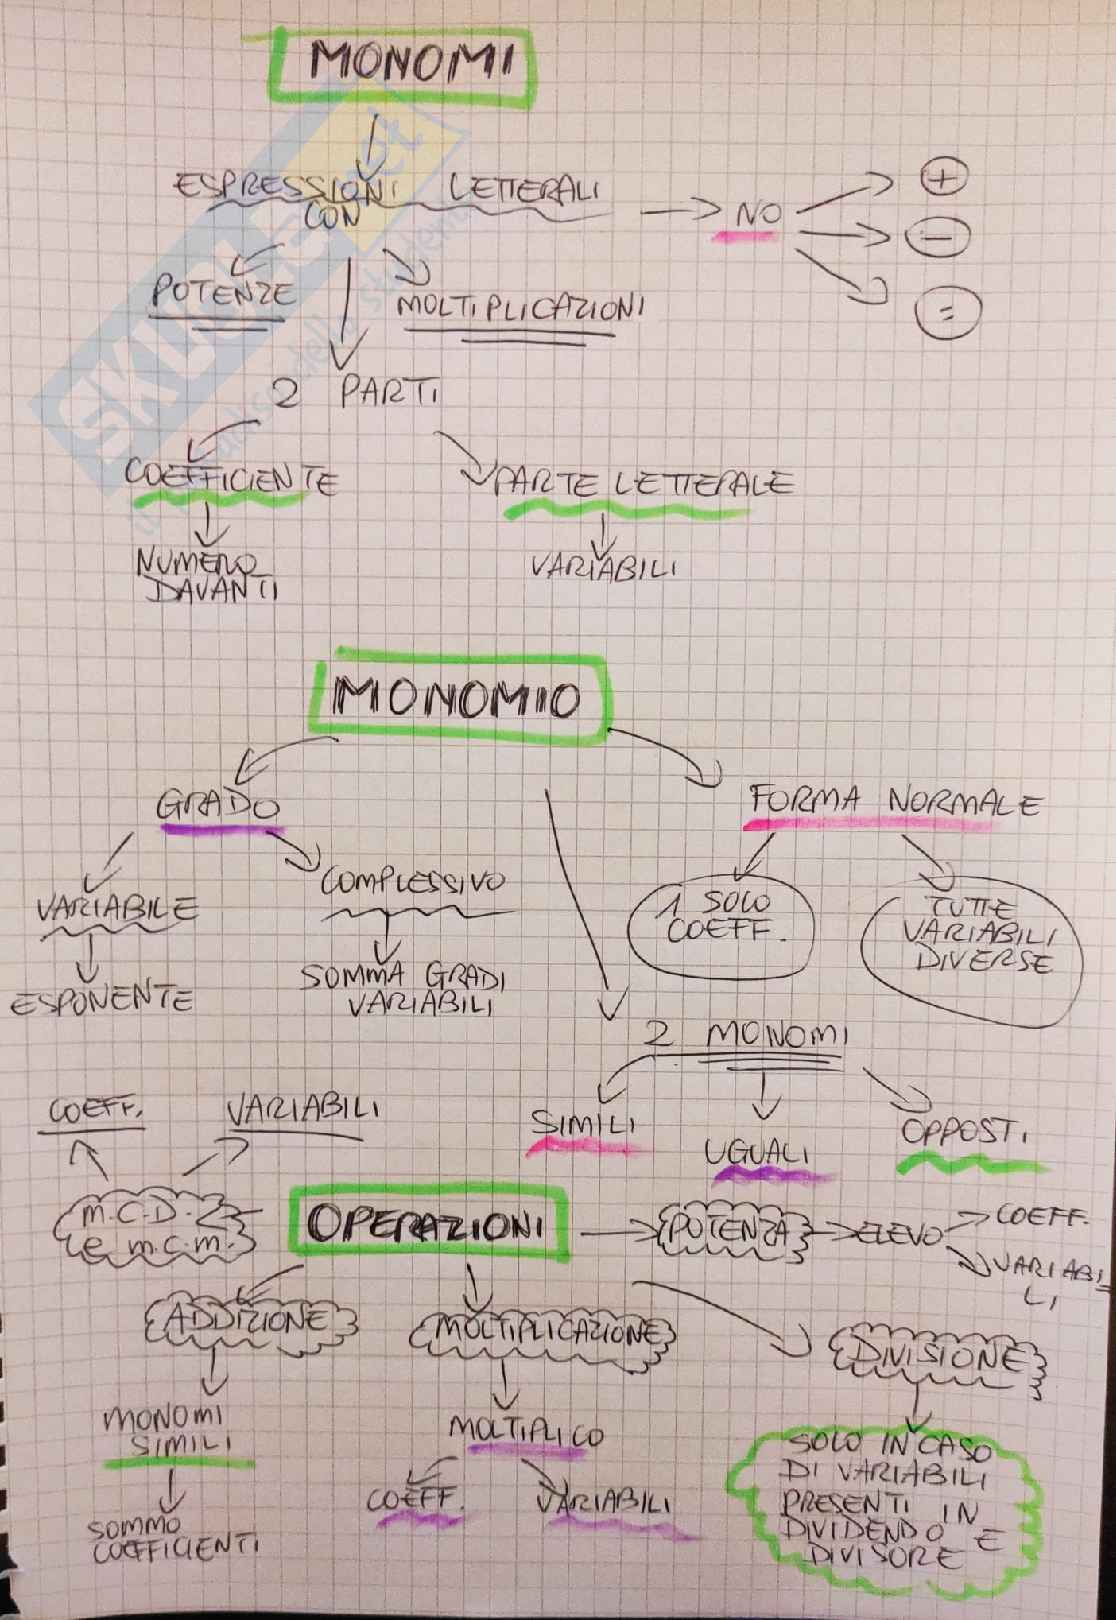 MONOMI
ESPRESSIONI LETTERALI
CON
NO
+
-
=
POTENZE
MOLTIPLICAZIONI
2 PARTI
COEFFICIENTE
PARTE LETTERALE
NUMERO
DAVANTI
VARIABILI
MONOMIO
GRADO
FORMA NORMALE
VARIABILE
COMPLESSIVO
1 SOLO
COEFF.
TUTTE
VARIABILI
DIVERSE
ESPONENTE
SOMMA GRADI
VARIABILI
2 MONOMI
SIMILI
UGUALI
OPPOSTI
COEFF.
VARIABILI
M.C.D.
e m.c.m.
OPERAZIONI
POTENZA
ELEVO
COEFF.
VARIABI-
LI
ADDIZIONE
MOLTIPLICAZIONE
DIVISIONE
MONOMI
SIMILI
SOMMO
COEFFICIENTI
MOLTIPLICO
COEFF.
VARIABILI
SOLO IN CASO
DI VARIABILI
PRESENTI IN
DIVIDENDO E
DIVISORE